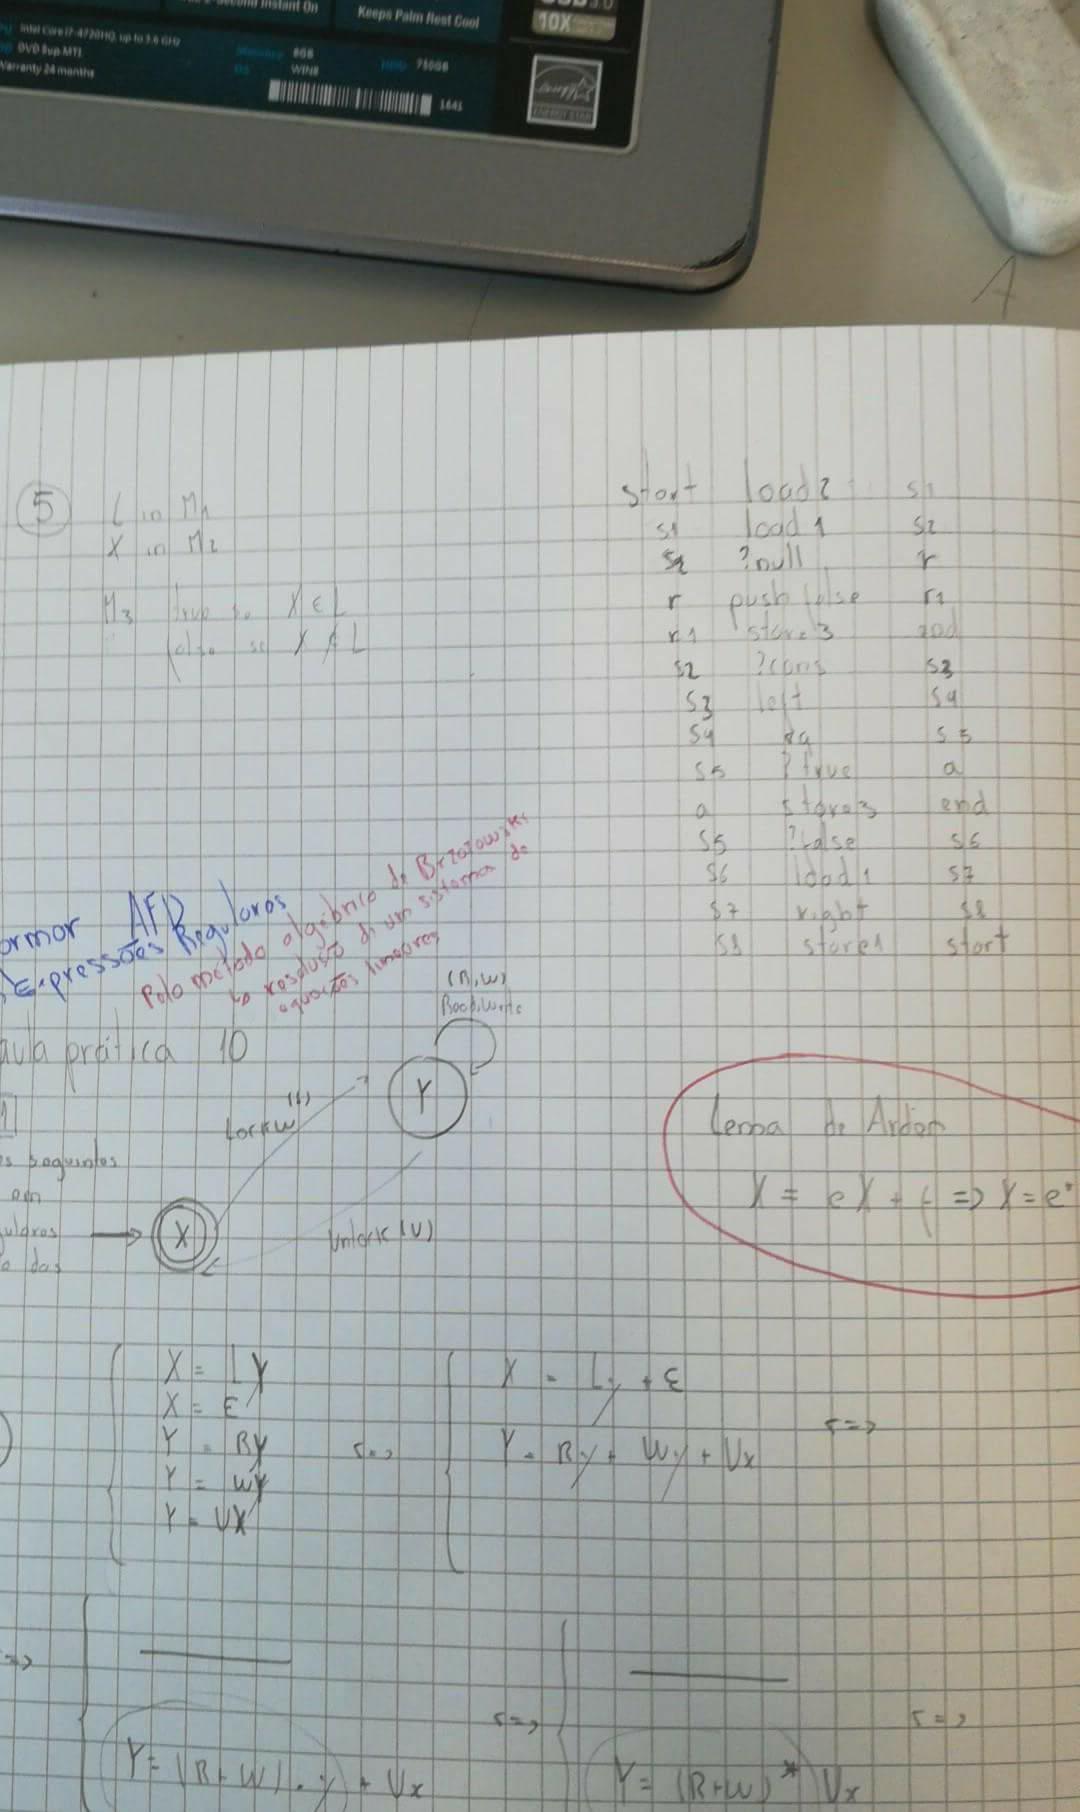 Instant On
Keeps Palm Rest Cool
10X
Intel Core i7-4720HQ, up to 3.6 GHz
DVD Sup MTL
Warranty 24 months
Memory 8GB
OS WIN8
HDD 750GB
1641
ENERGY STAR
A
5
L in M1
X in M2
M3 true se X ∈ L
false se X ∉ L
start load2 s1
s1 load1 s2
s2 ?null r
r push false r1
r1 store3 end
s2 ?cons s3
s3 left s4
s4 eq s5
s5 ?true a
a store3 end
s5 ?false s6
s6 load1 s7
s7 right s8
s8 store1 start
ormar AFD
Expressões Regulares
Pelo método algébrico de Brzozowski
↳ resolução de um sistema de
equações lineares
aula prática 10
1
s seguintes
em
gulares
e das
(R,W)
Read,Write
Y
(L)
LockW
X
Unlock (U)
Lema de Arden
X = eX + f => X = e*
X = LY
X = ε
Y = RY
Y = WY
Y = UX
<=>
X = Ly + ε
Y = Ry + Wy + Ux
<=>
=>
Y = (R+W).y + Ux
<=>
Y = (R+W)* Ux
<=>